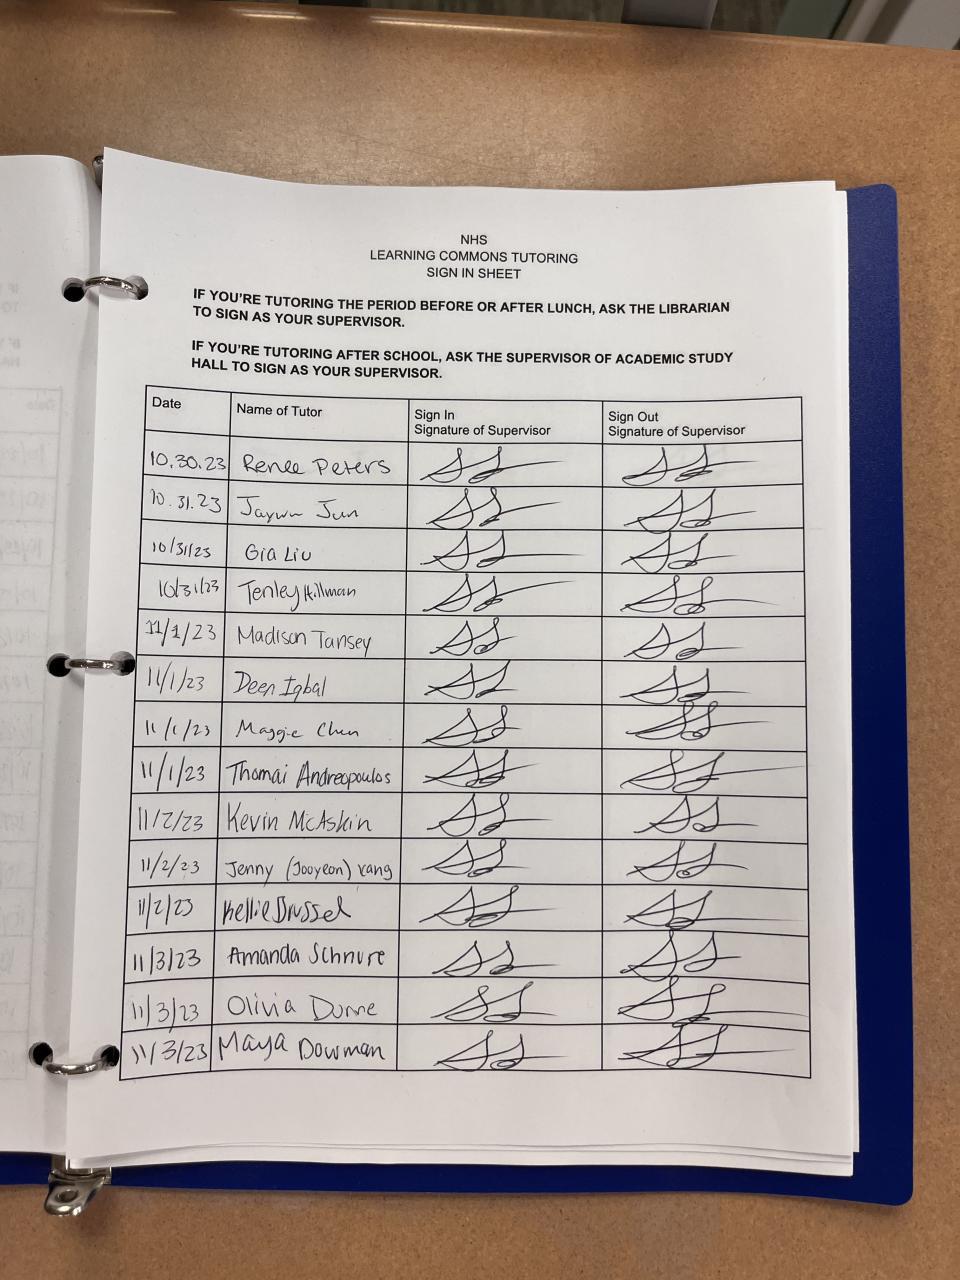 NHS
LEARNING COMMONS TUTORING
SIGN IN SHEET
IF YOU'RE TUTORING THE PERIOD BEFORE OR AFTER LUNCH, ASK THE LIBRARIAN
TO SIGN AS YOUR SUPERVISOR.
IF YOU'RE TUTORING AFTER SCHOOL, ASK THE SUPERVISOR OF ACADEMIC STUDY
HALL TO SIGN AS YOUR SUPERVISOR.
Date Name of Tutor Sign In Sign Out
Signature of Supervisor Signature of Supervisor
10.30.23 Renee Peters
10.31.23 Jun
10/31/23 Gia Liu
10/31/23 Tenley Hillman
11/1/23 Madison Tansey
11/1/23 Deen Iqbal
11/1/23 Maggie Chen
11/1/23 Thomai Andreopoulos
11/2/23 Kevin McAskin
11/2/23 Jenny (Jooyeon) Yang
11/2/23 Kellie
11/3/23 Amanda Schnure
11/3/23 Olivia Dunne
11/3/23 Maya Dowman